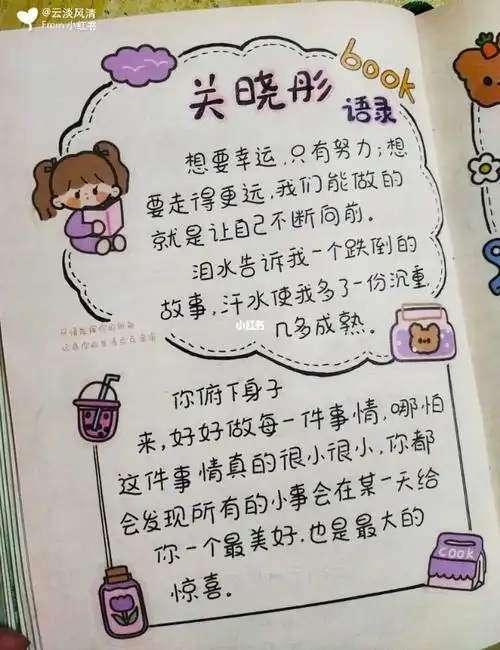 @云淡风清
From 小红书
book
关晓彤
语录
想要幸运，只有努力；想
要走得更远，我们能做的
就是让自己不断向前。
泪水告诉我一个跌倒的
故事，汗水使我多了一份沉重，
几多成熟。
小红书
你俯下身子
来，好好做每一件事情，哪怕
这件事情真的很小很小，你都
会发现所有的小事会在某一天给
你一个最美好，也是最大的
惊喜。
COOK